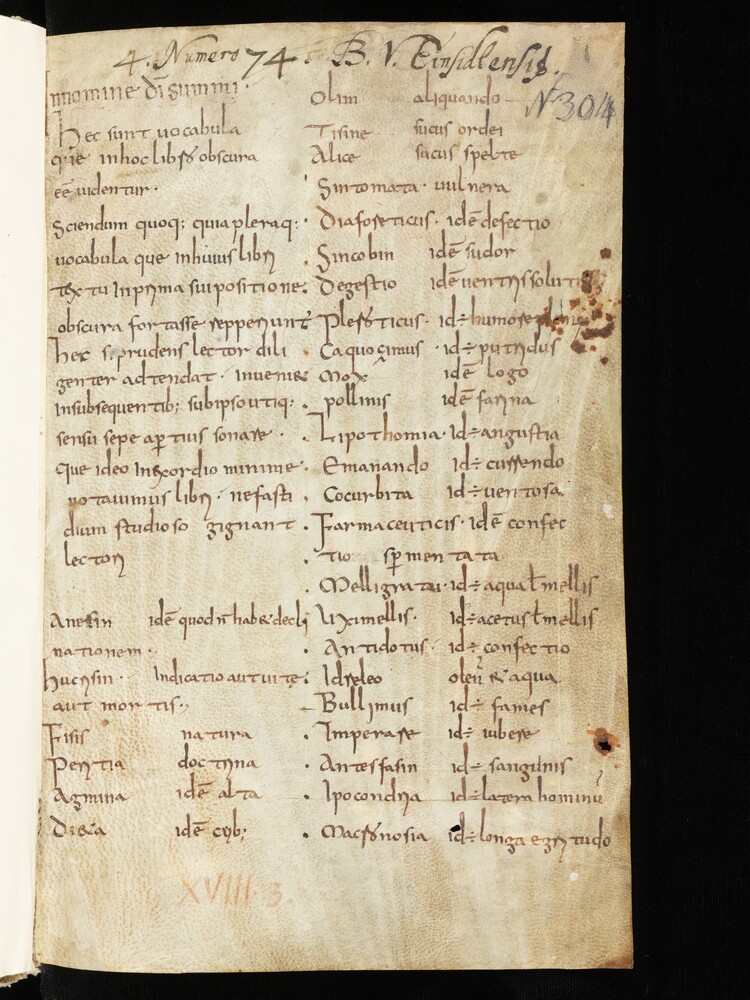 4. Numero 74. B. V. Einsidlensis.
N 304
1
Innomine dī summi.
Hec sunt uocabula
que inhoc libro obscura
eē uidentur.
Sciendum quoq; quia pleraq;
uocabula que inhuius libri
textu Inprima suipositione
obscura fortasse repperiunt
hec si prudens lector dili
genter adtendat. inueniet
Insubsequentib; subipso utiq;
sensu sepe apertius sonare.
Que ideo Inexordio minime
notauimus libri. nefasti
dium studioso gignant
lectori
Anesin idē quod n̄ hab& decli
nationem.
hucrisin. Indicatio aut uite
aut mortis.
Fisis natura
Peritia doctrina
Agmina idē alta
Di&a idē cib;
Olim aliquando
Tisine sucus ordei
Alice sucus spelte
Sintomata. uulnera
Diaforeticus. idē defectio
Sincobin idē sudor
Degestio idē uentris soluti
Pletoricus. id÷ humore
Caquocimus. id÷ putridus
Mox idē logo
pollinis idē farina
Lipothomia. id÷ angustia
Emanando id÷ currendo
Cocurbita id÷ uentosa
Farmaceuticis. idē confec
tio spermentata
Melligratu. id÷ aqua ł mellis
Uximellis. id÷ acetus ł mellis
Antidotus. id÷ confectio
Idreleo oleū & aqua
Bullimus id÷ fames
Imperare id÷ iubere
Antesfasin id÷ sanguinis
Ipocondria id÷ latera hominū
Macronosia id÷ longa egritudo
XVIII. 3.